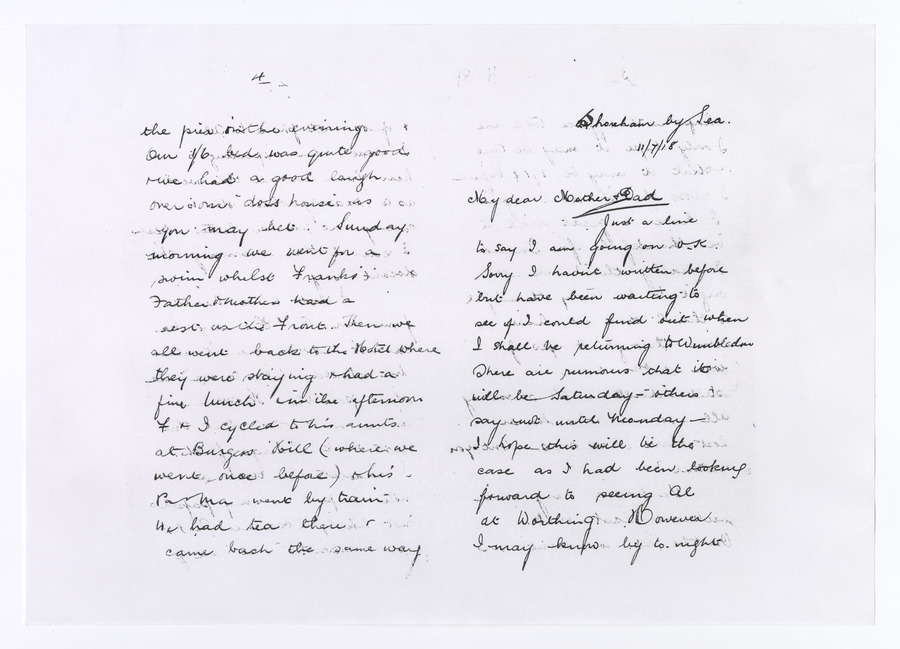 4
the pier in the evening
Our 1/6 bed was quite good
& we had a good laugh
over our doss house as
you may bet. Sunday
morning we went for a
swim whilst Frank's
Father & Mother had a
rest on the Front. Then we
all went back to the Hotel where
they were staying & had a
fine lunch in the afternoon
F & I cycled to his aunts
at Burgess Hill (where we
went once before) & his
Pa & Ma went by train
We had tea there &
came back the same way
Shoreham by Sea.
11/7/18
My dear Mother & Dad
Just a line
to say I am going on O.K
Sorry I havn't written before
but have been waiting to
see if I could find out when
I shall be returning to Wimbledon
There are rumours that it
will be Saturday — others
say not until Monday —
I hope this will be the
case as I had been looking
forward to seeing Al
at Worthing. However
I may know by to-night